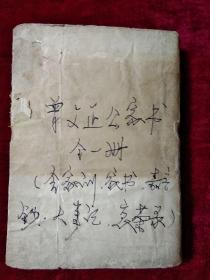 曾文正公家书
全一册
(含家训、家书、嘉言
钞、大事记、哀荣录)